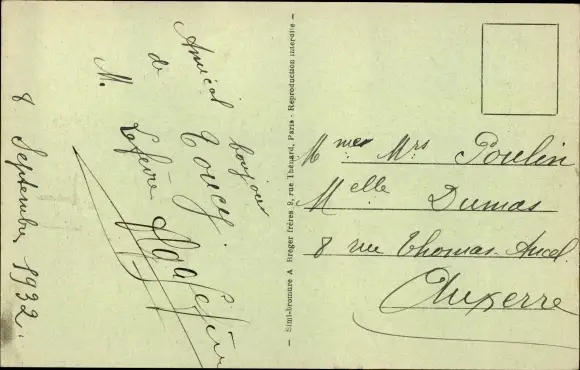 Amical bonjour
de Toucy
M. Lefèvre
8 Septembre 1932.
— Simi-bromure A. Breger frères 9, rue Thénard, Paris - Reproduction interdite —
Mmes Mrs Poulin
Melle Dumas
8 rue Thomas-Ancel
Auxerre